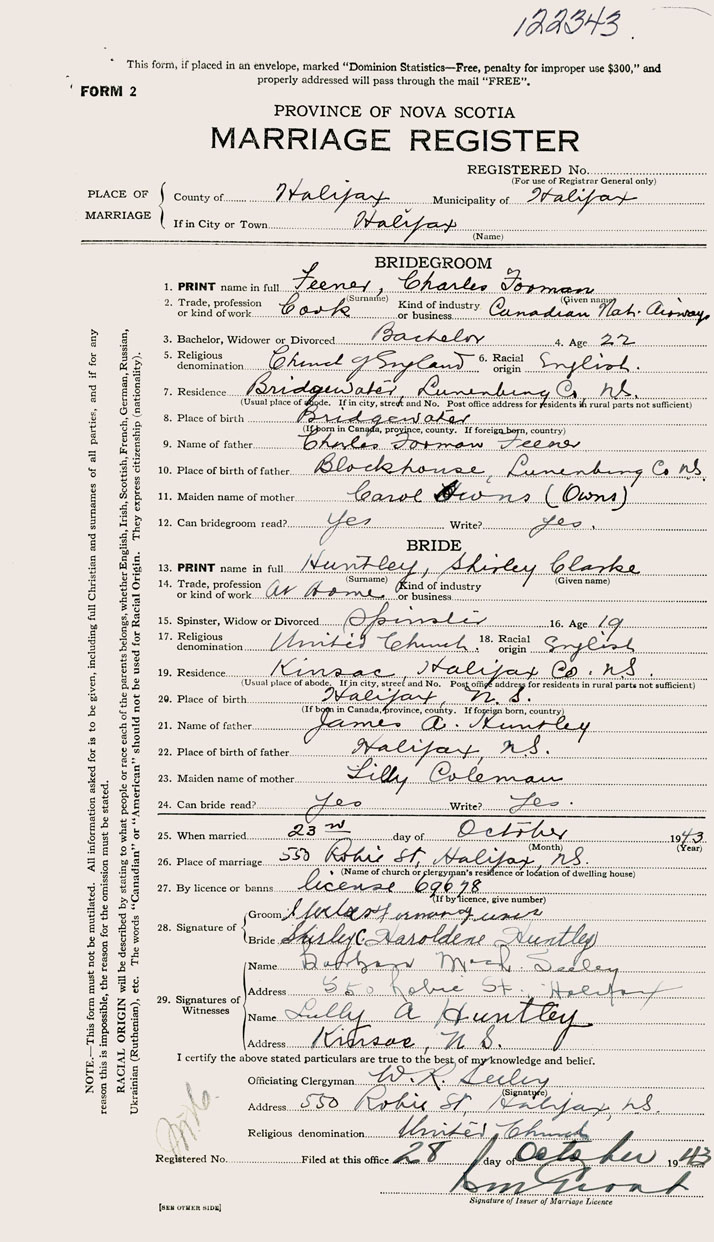 122343.
This form, if placed in an envelope, marked "Dominion Statistics—Free, penalty for improper use $300," and
properly addressed will pass through the mail "FREE".
FORM 2
PROVINCE OF NOVA SCOTIA
MARRIAGE REGISTER
REGISTERED No.
(For use of Registrar General only)
PLACE OF MARRIAGE
County of Halifax Municipality of Halifax
If in City or Town Halifax
(Name)
BRIDEGROOM
1. PRINT name in full Feener, Charles Forman
(Surname) (Given name)
2. Trade, profession or kind of work Cook Kind of industry or business Canadian Nat. Airways
3. Bachelor, Widower or Divorced Bachelor 4. Age 22
5. Religious denomination Church of England 6. Racial origin English.
7. Residence Bridgewater, Lunenburg Co, N.S.
(Usual place of abode. If in city, street and No. Post office address for residents in rural parts not sufficient)
8. Place of birth Bridgewater
(If born in Canada, province, county. If foreign born, country)
9. Name of father Charles Forman Feener
10. Place of birth of father Blockhouse, Lunenburg Co N.S.
11. Maiden name of mother Carol Owns (Owns)
12. Can bridegroom read? Yes Write? Yes.
BRIDE
13. PRINT name in full Huntley, Shirley Clarke
(Surname) (Given name)
14. Trade, profession or kind of work At Home Kind of industry or business
15. Spinster, Widow or Divorced Spinster 16. Age 19
17. Religious denomination United Church. 18. Racial origin English
19. Residence Kinsac, Halifax Co. N.S.
(Usual place of abode. If in city, street and No. Post office address for residents in rural parts not sufficient)
20. Place of birth Halifax, N.S.
(If born in Canada, province, county. If foreign born, country)
21. Name of father James A. Huntley
22. Place of birth of father Halifax, N.S.
23. Maiden name of mother Lilly Coleman
24. Can bride read? Yes Write? Yes.
25. When married 23rd day of October 1943
(Month) (Year)
26. Place of marriage 550 Robie St, Halifax, N.S.
(Name of church or clergyman's residence or location of dwelling house)
27. By licence or banns license 69678
(If by licence, give number)
28. Signature of
Groom
Bride Shirley C Haroldene Huntley
29. Signatures of Witnesses
Name Seeley
Address 550 Robie St. Halifax
Name Lilly A Huntley
Address Kinsac, N.S.
I certify the above stated particulars are true to the best of my knowledge and belief.
Officiating Clergyman W. R. Seeley
(Signature)
Address 550 Robie St, Halifax, N.S.
Religious denomination United Church
Registered No. Filed at this office 28 day of October 1943
Signature of Issuer of Marriage Licence
[SEE OTHER SIDE]
NOTE.—This form must not be mutilated. All information asked for is to be given, including full Christian and surnames of all parties, and if for any
reason this is impossible, the reason for the omission must be stated.
RACIAL ORIGIN will be described by stating to what people or race each of the parents belongs, whether English, Irish, Scottish, French, German, Russian,
Ukrainian (Ruthenian), etc. The words "Canadian" or "American" should not be used for Racial Origin. They express citizenship (nationality).